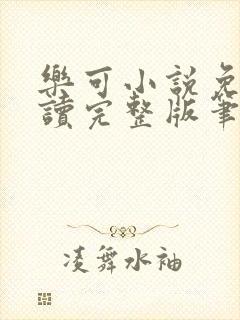 樂可小説免
讀完整版筆
凌舞水袖